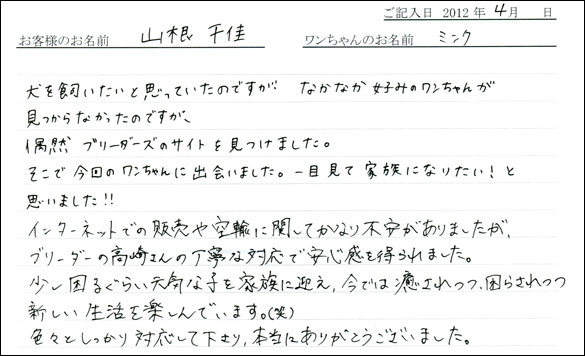 ご記入日 2012 年 4月 日
お客様のお名前 山根 千佳 ワンちゃんのお名前 ミンク
犬を飼いたいと思っていたのですが なかなか好みのワンちゃんが
見つからなかったのですが、
偶然 ブリーダーズのサイトを見つけました。
そこで今回のワンちゃんに出会いました。一目見て家族になりたい!と
思いました!!
インターネットでの販売や空輸に関してかなり不安がありましたが、
ブリーダーの高崎さんの丁寧な対応で安心感を得られました。
少し困るぐらい元気な子を家族に迎え、今では癒されつつ、困らされつつ
新しい生活を楽しんでいます。(笑)
色々としっかり対応して下さり、本当にありがとうございました。